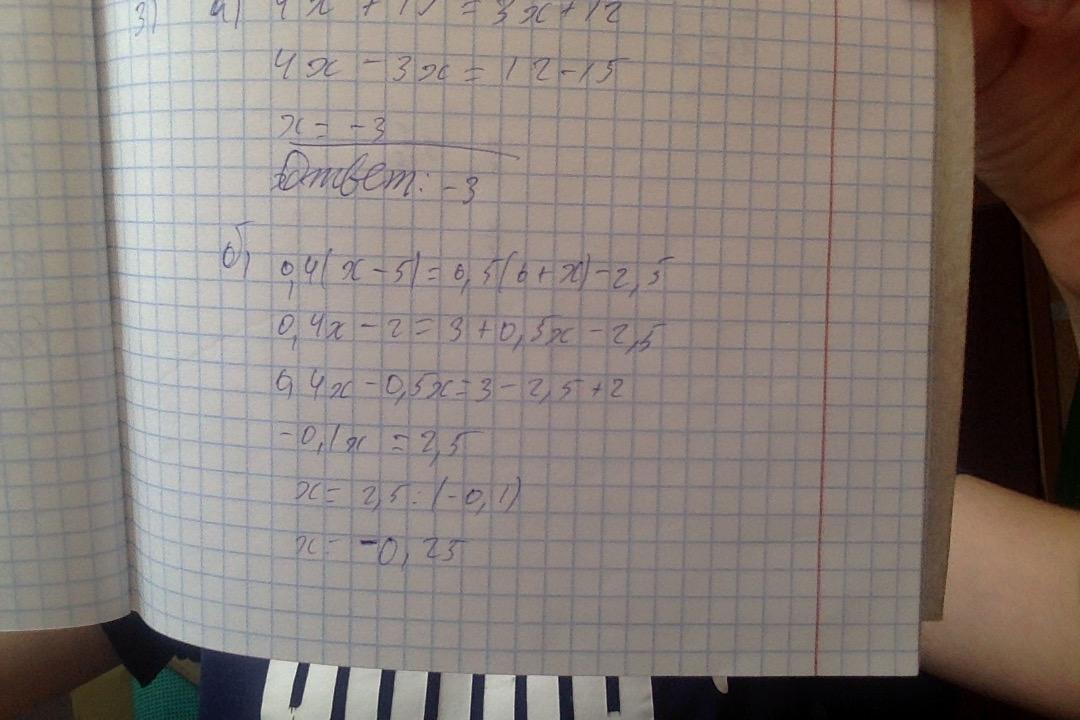 3) а) 4x + 15 = 3x+12
4x - 3x = 12-15
x = -3
Ответ: -3
б) 0,4(x-5) = 0,5(6+x)-2,5
0,4x - 2 = 3 + 0,5x - 2,5
0,4x - 0,5x = 3 - 2,5 + 2
-0,1x = 2,5
x = 2,5 : (-0,1)
x = -0,25